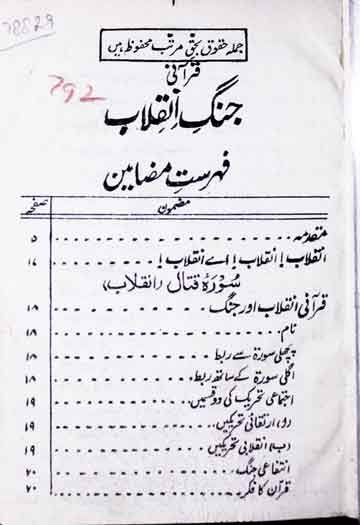 78829
جملہ حقوق بحق مرتب محفوظ ہیں
792
قرآنی
جنگِ انقلاب
فہرستِ مضامین
مضمون صفحہ
مقدمہ ۵
انقلاب! انقلاب! اے انقلاب! ۱۷
سورۂ قتال (انقلاب)
قرآنی انقلاب اور جنگ ۱۸
نام ۱۸
پچھلی سورۃ سے ربط ۱۸
اگلی سورۃ کے ساتھ ربط ۱۸
اجتماعی تحریک کی دو قسمیں ۱۹
(ا) ارتقائی تحریکیں ۱۹
(ب) انقلابی تحریکیں ۱۹
انتفاعی جنگ ۲۰
قرآن کا فکر ۲۰